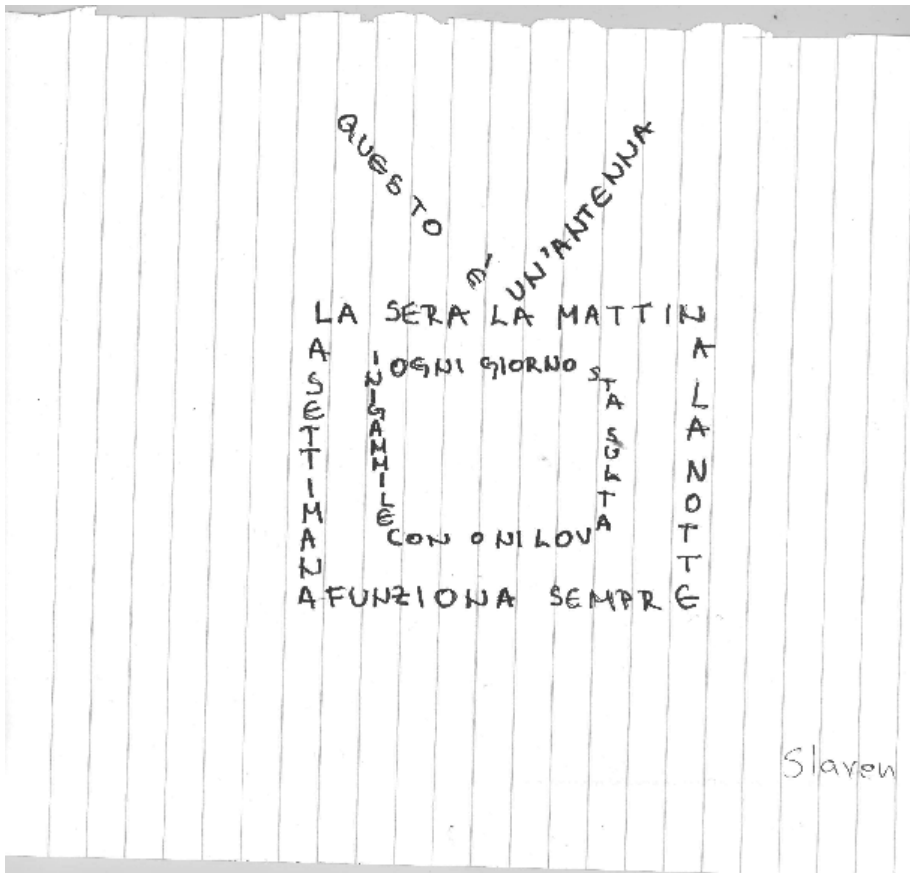 QUESTO
È
UN'ANTENNA
LA SERA LA MATTIN
A LA NOTT
AFUNZIONA SEMPRE
ASETTIMAN
OGNI GIORNO
STA SULTA
CON ONILOV
INIGAMMILE
Slaven